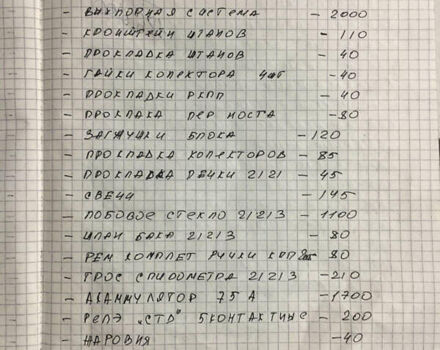 - ВЫХЛОПНАЯ СИСТЕМА - 2000
- КРОНШТЕЙН ШТАНОВ - 110
- ПРОКЛАДКА ШТАНОВ - 40
- ГАЙКИ КОЛЕКТОРА 4шт - 40
- ПРОКЛАДКИ РКПП - 40
- ПРОКЛАКА ПЕР МОСТА - 80
- ЗАГЛУШКИ БЛОКА - 120
- ПРОКЛАДКА КОЛЕКТОРОВ - 85
- ПРОКЛАДКА ПЕЧКИ 2121 - 45
- СВЕЧИ - 145
- ЛОБОВОЕ СТЕКЛО 21213 - 1100
- ШЛАН БАКА 21213 - 80
- РЕМ КОМПЛЕТ РУЧКИ КПП - 80
- ТРОС СПИДОМЕТРА 21213 - 210
- АКАММУЛЯТОР 75 А - 1700
- РЕЛЭ „СТР" 5КОНТАКТНЫЕ - 200
- ЖАРОВИЯ - 40